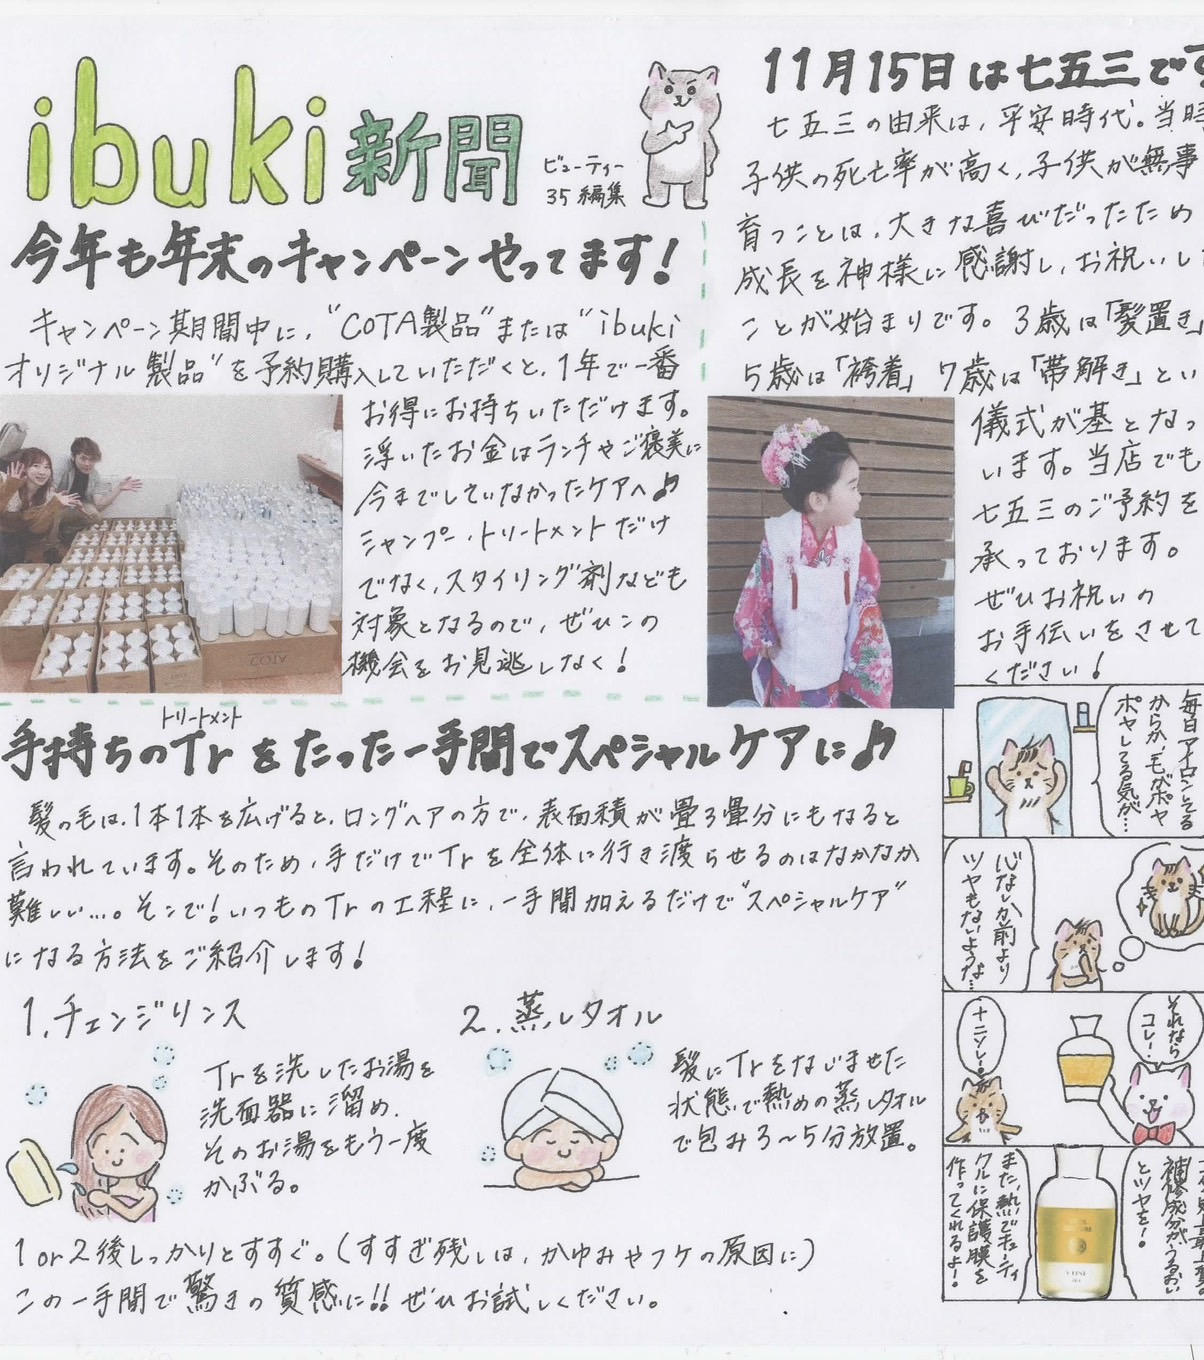 ibuki 新聞
ビューティー
35 編集
今年も年末のキャンペーンやってます!
キャンペーン期間中に、"COTA製品"または"ibuki
オリジナル製品"を予約購入していただくと、1年で一番
お得にお持ちいただけます。
浮いたお金はランチやご褒美に
今までしていなかったケアへ♪
シャンプー・トリートメントだけ
でなく、スタイリング剤なども
対象となるので、ぜひこの
機会をお見逃しなく!
COTA
11月15日は七五三です
七五三の由来は、平安時代。当時
子供の死亡率が高く、子供が無事
育つことは、大きな喜びだったため
成長を神様に感謝し、お祝いした
ことが始まりです。3歳は「髪置き」
5歳は「袴着」7歳は「帯解き」とい
儀式が基となっ
います。当店でも
七五三のご予約を
承っております。
ぜひお祝いの
お手伝いをさせて
ください!
トリートメント
手持ちのTrをたった一手間でスペシャルケアに♪
髪の毛は、1本1本を広げると、ロングヘアの方で、表面積が畳3畳分にもなると
言われています。そのため、手だけでTrを全体に行き渡らせるのはなかなか
難しい…。そこで!いつものTrの工程に、一手間加えるだけで"スペシャルケア"
になる方法をご紹介します!
1.チェンジリンス
Trを洗したお湯を
洗面器に溜め、
そのお湯をもう一度
かぶる。
2.蒸しタオル
髪にTrをなじませた
状態で熱めの蒸しタオル
で包み3〜5分放置。
1or2後しっかりとすすぐ。(すすぎ残しは、かゆみやフケの原因に)
この一手間で驚きの質感に!!ぜひお試しください。
毎日アイロンしてる
からか、毛がポヤ
ポヤしてる気が…
心なしか前より
ツヤもないような…
それなら
コレ!
ナニソレ!
補修成分がうるおい
とツヤを!
また、熱でキューティ
クルに保護膜を
作ってくれるよ!